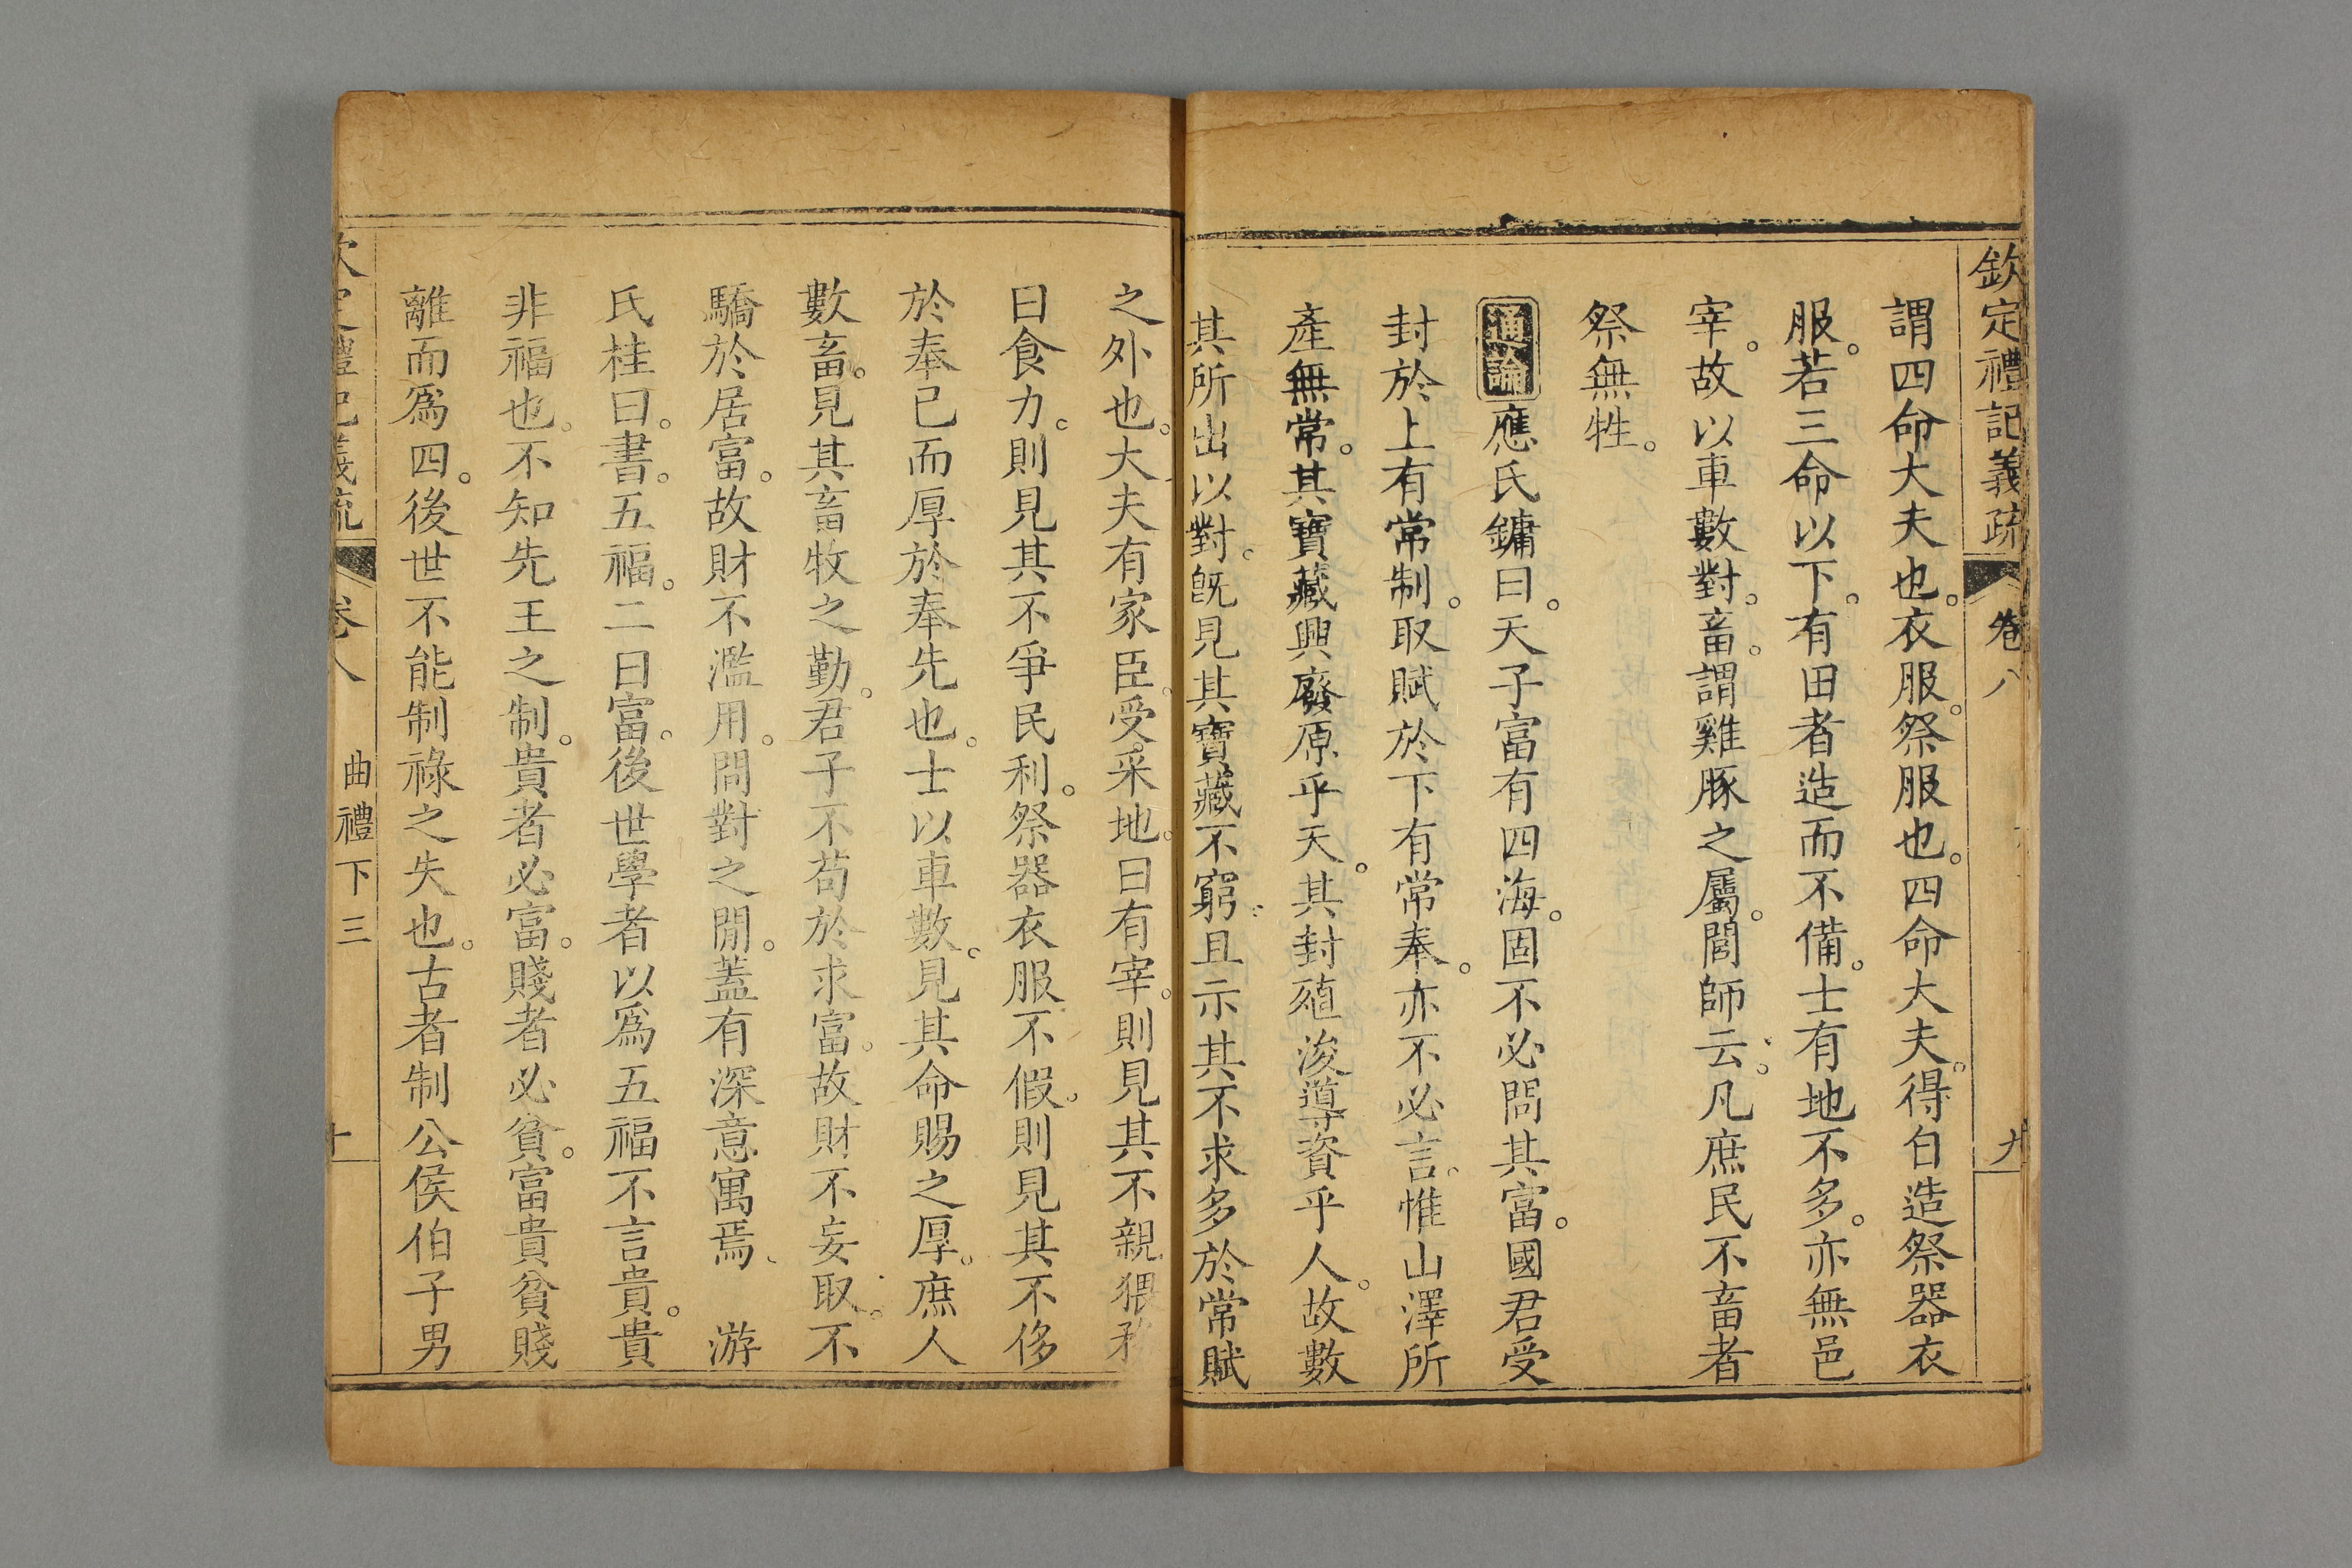 欽定禮記義疏 卷八 九
謂四命大夫也。衣服。祭服也。四命大夫。得自造祭器衣
服。若三命以下。有田者造而不備。士有地不多。亦無邑
宰。故以車數對。畜。謂雞豚之屬。閭師云。凡庶民不畜者
祭無牲。
通論應氏鏞曰。天子富有四海。固不必問其富。國君受
封於上有常制。取賦於下有常奉。亦不必言。惟山澤所
產無常。其寶藏興廢原乎天。其封殖浚導資乎人。故數
其所出以對。旣見其寶藏不窮。且示其不求多於常賦
之外也。大夫有家臣。受采地。曰有宰。則見其不親猥務
曰食力。則見其不爭民利。祭器衣服不假。則見其不侈
於奉己而厚於奉先也。士以車數。見其命賜之厚。庶人
數畜。見其畜牧之勤。君子不苟於求富。故財不妄取。不
驕於居富。故財不濫用。問對之閒。蓋有深意寓焉、 游
氏桂曰。書。五福。二曰富。後世學者以爲五福不言貴。貴
非福也。不知先王之制。貴者必富。賤者必貧。富貴貧賤
離而爲四。後世不能制祿之失也。古者制公侯伯子男
欽定禮記義疏 卷八 曲禮下三 十